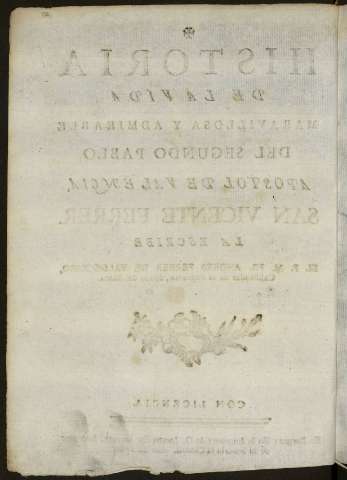 HISTORIA
DE LA VIDA
MARAVILLOSA Y ADMIRABLE
DEL SEGUNDO PABLO
APOSTOL DE VALENCIA,
SAN VICENTE FERRER.
LA ESCRIBE
EL P. M. FR. ANDRES FERRER DE VALDECEBRO,
CON LICENCIA